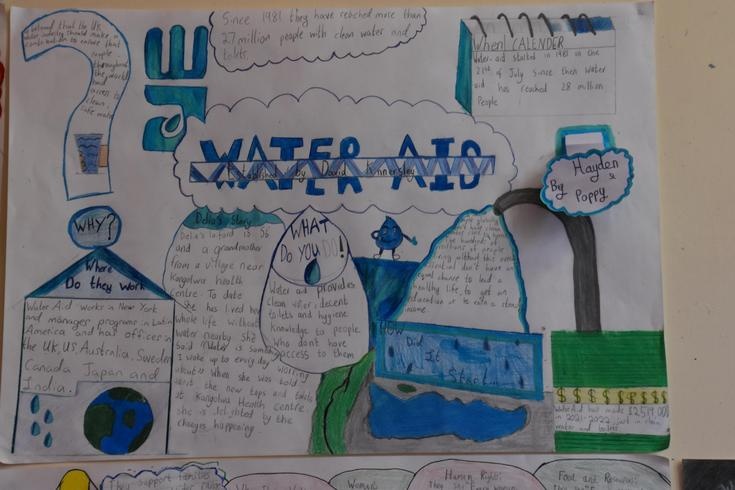 believed that the UK
water industry should make a
contribution to ensure that
people
throughout
the world
had
access to
clean,
safe water
Since 1981 they have reached more than
27 million people with clean water and
toilets.
When? CALENDER
Water aid started in 1981 on the
21st of July since then Water
aid has reached 28 million
People
WATER AID
Established by David Kinnersley
By Hayden
&
Poppy
WHY?
Where
Do they work
Water Aid works in New York
and manages programs in Latin
America and has offices in
the UK, US, Australia, Sweden
Canada Japan and
India.
Delia's Story
Delia is 56
and a grandmother
from a village near
Kangolwa health
Centre. To date
She has lived her
whole life without
water nearby She
said
I wake up to every day worrying
about" When she was told
about the new taps and toilets
at Kangolwa Health centre
she is delighted by the
changes happening
WHAT
Do You DO!
Water aid provides
clean water, decent
toilets and hygiene
Knowledge to people
Who don't have
access to them
hundreds of
millions of people
without this
don't have an
equal chance to lead a
healthy life, to get an
education or to earn a
income.
How
Did
It
Start...
$ $ $ $ $ $ $ $ $
Water Aid has made
in 2021-2022 just in clean
water and toilets
They support families
Women's
Human Rights:
Food and Resources: